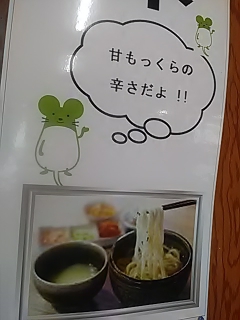 甘もっくらの
辛さだよ !!